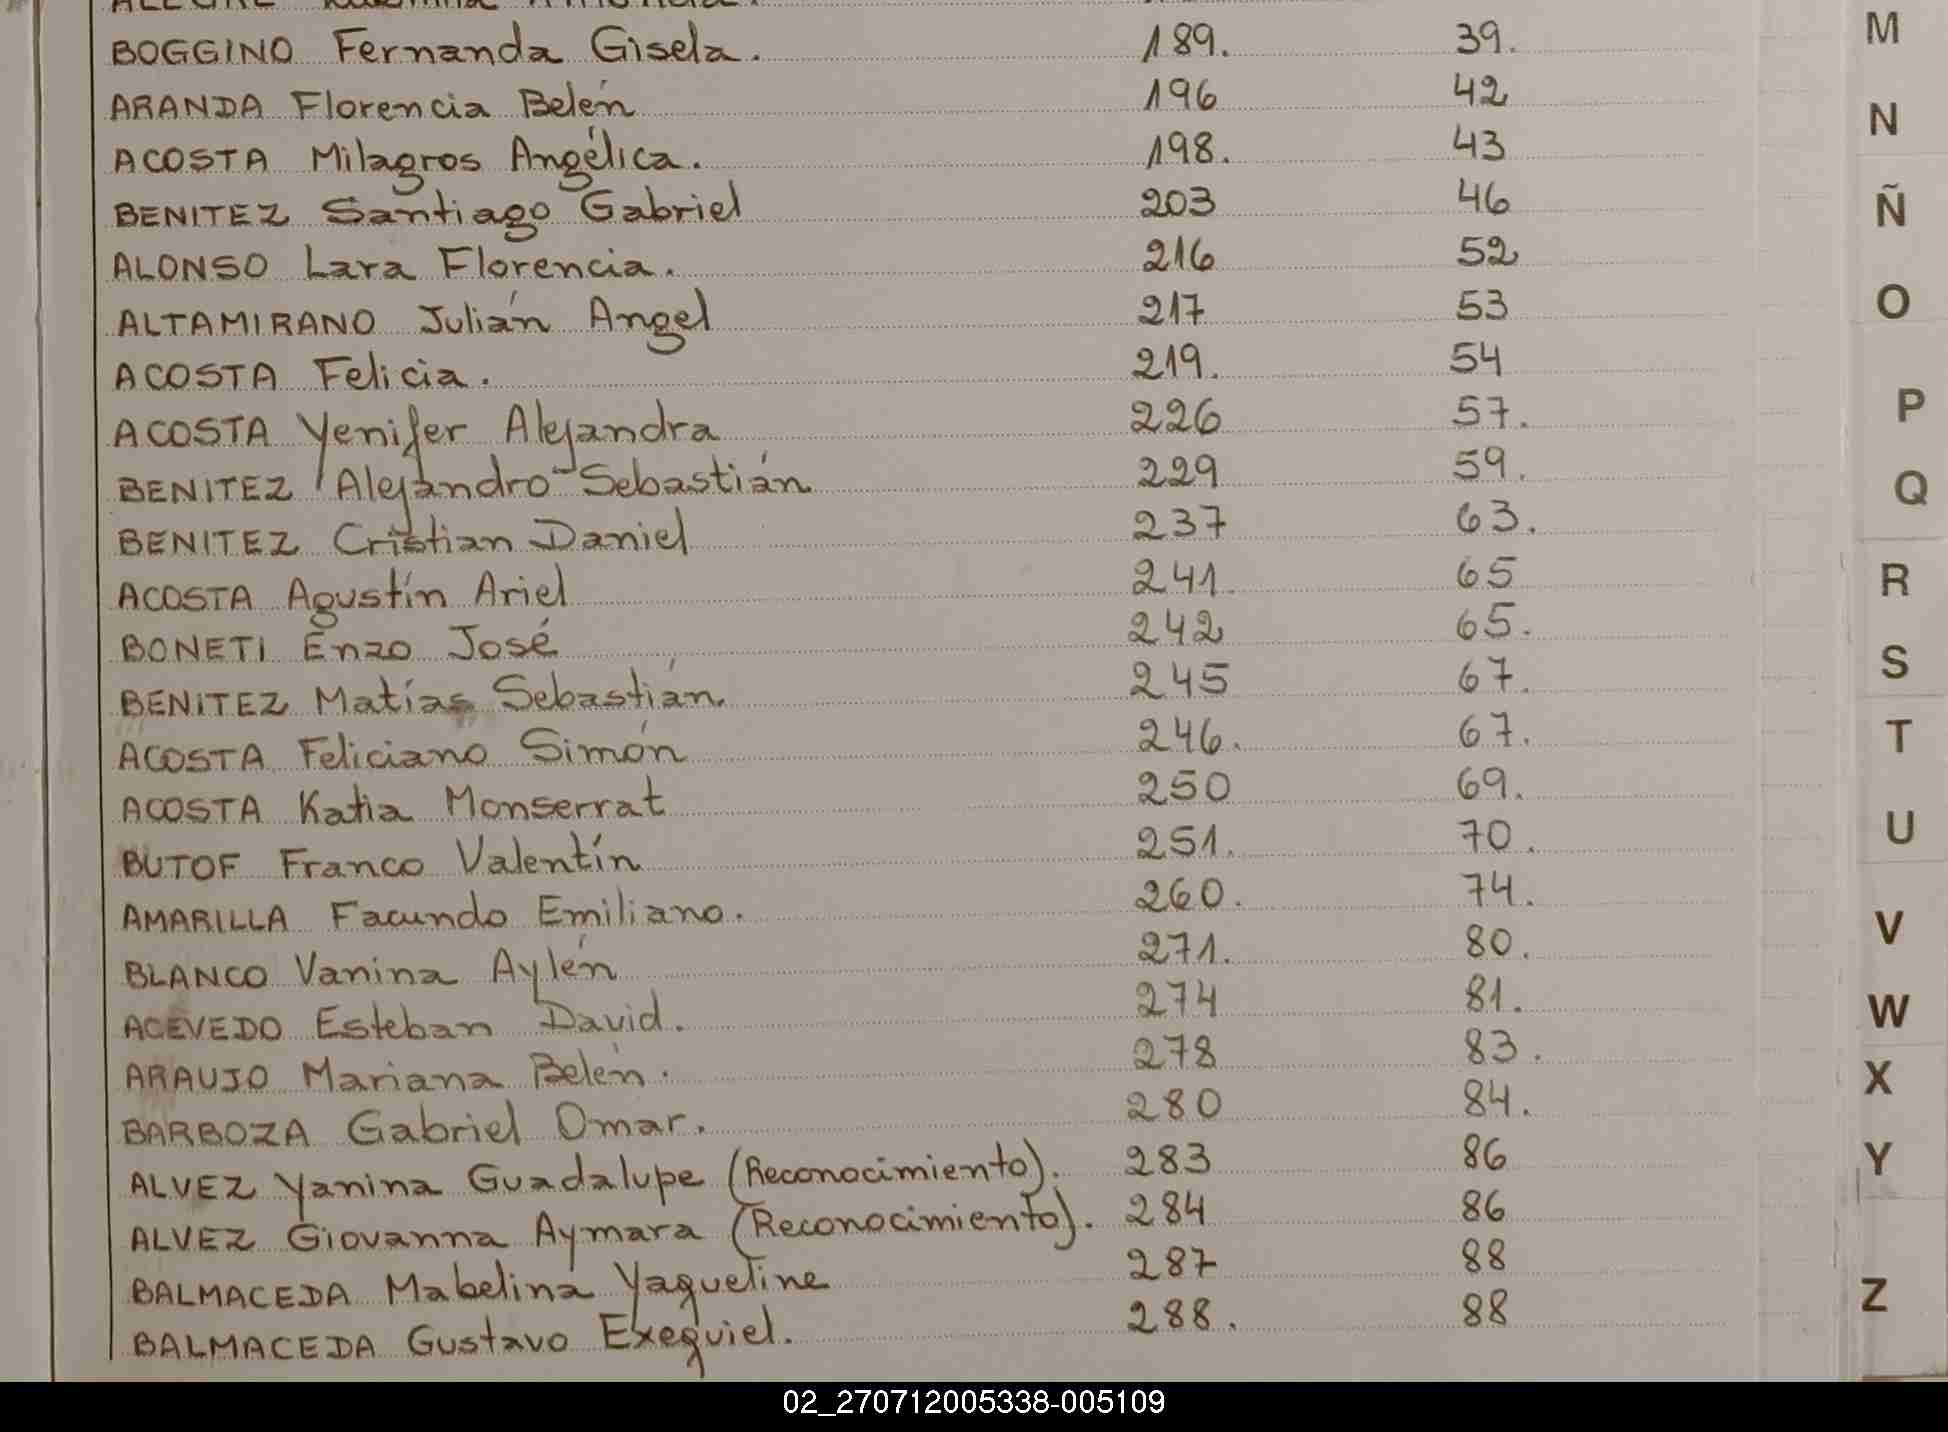 BOGGINO Fernanda Gisela. 189. 39.
ARANDA Florencia Belén 196 42
ACOSTA Milagros Angélica. 198. 43
BENITEZ Santiago Gabriel 203 46
ALONSO Lara Florencia. 216 52
ALTAMIRANO Julián Angel 217 53
ACOSTA Felicia. 219. 54
ACOSTA Yenifer Alejandra 226 57.
BENITEZ Alejandro Sebastián 229 59.
BENITEZ Cristian Daniel 237 63.
ACOSTA Agustín Ariel 241. 65
BONETI Enzo José 242 65.
BENITEZ Matías Sebastián 245 67.
ACOSTA Feliciano Simón 246. 67.
ACOSTA Katia Monserrat 250 69.
BUTOF Franco Valentín 251. 70.
AMARILLA Facundo Emiliano. 260. 74.
BLANCO Vanina Aylén 271. 80.
ACEVEDO Esteban David. 274 81.
ARAUJO Mariana Belén. 278 83.
BARBOZA Gabriel Omar. 280 84.
ALVEZ Yanina Guadalupe (Reconocimiento). 283 86
ALVEZ Giovanna Aymara (Reconocimiento). 284 86
BALMACEDA Mabelina Yaqueline 287 88
BALMACEDA Gustavo Exequiel. 288. 88
M
N
Ñ
O
P
Q
R
S
T
U
V
W
X
Y
Z
02_270712005338-005109